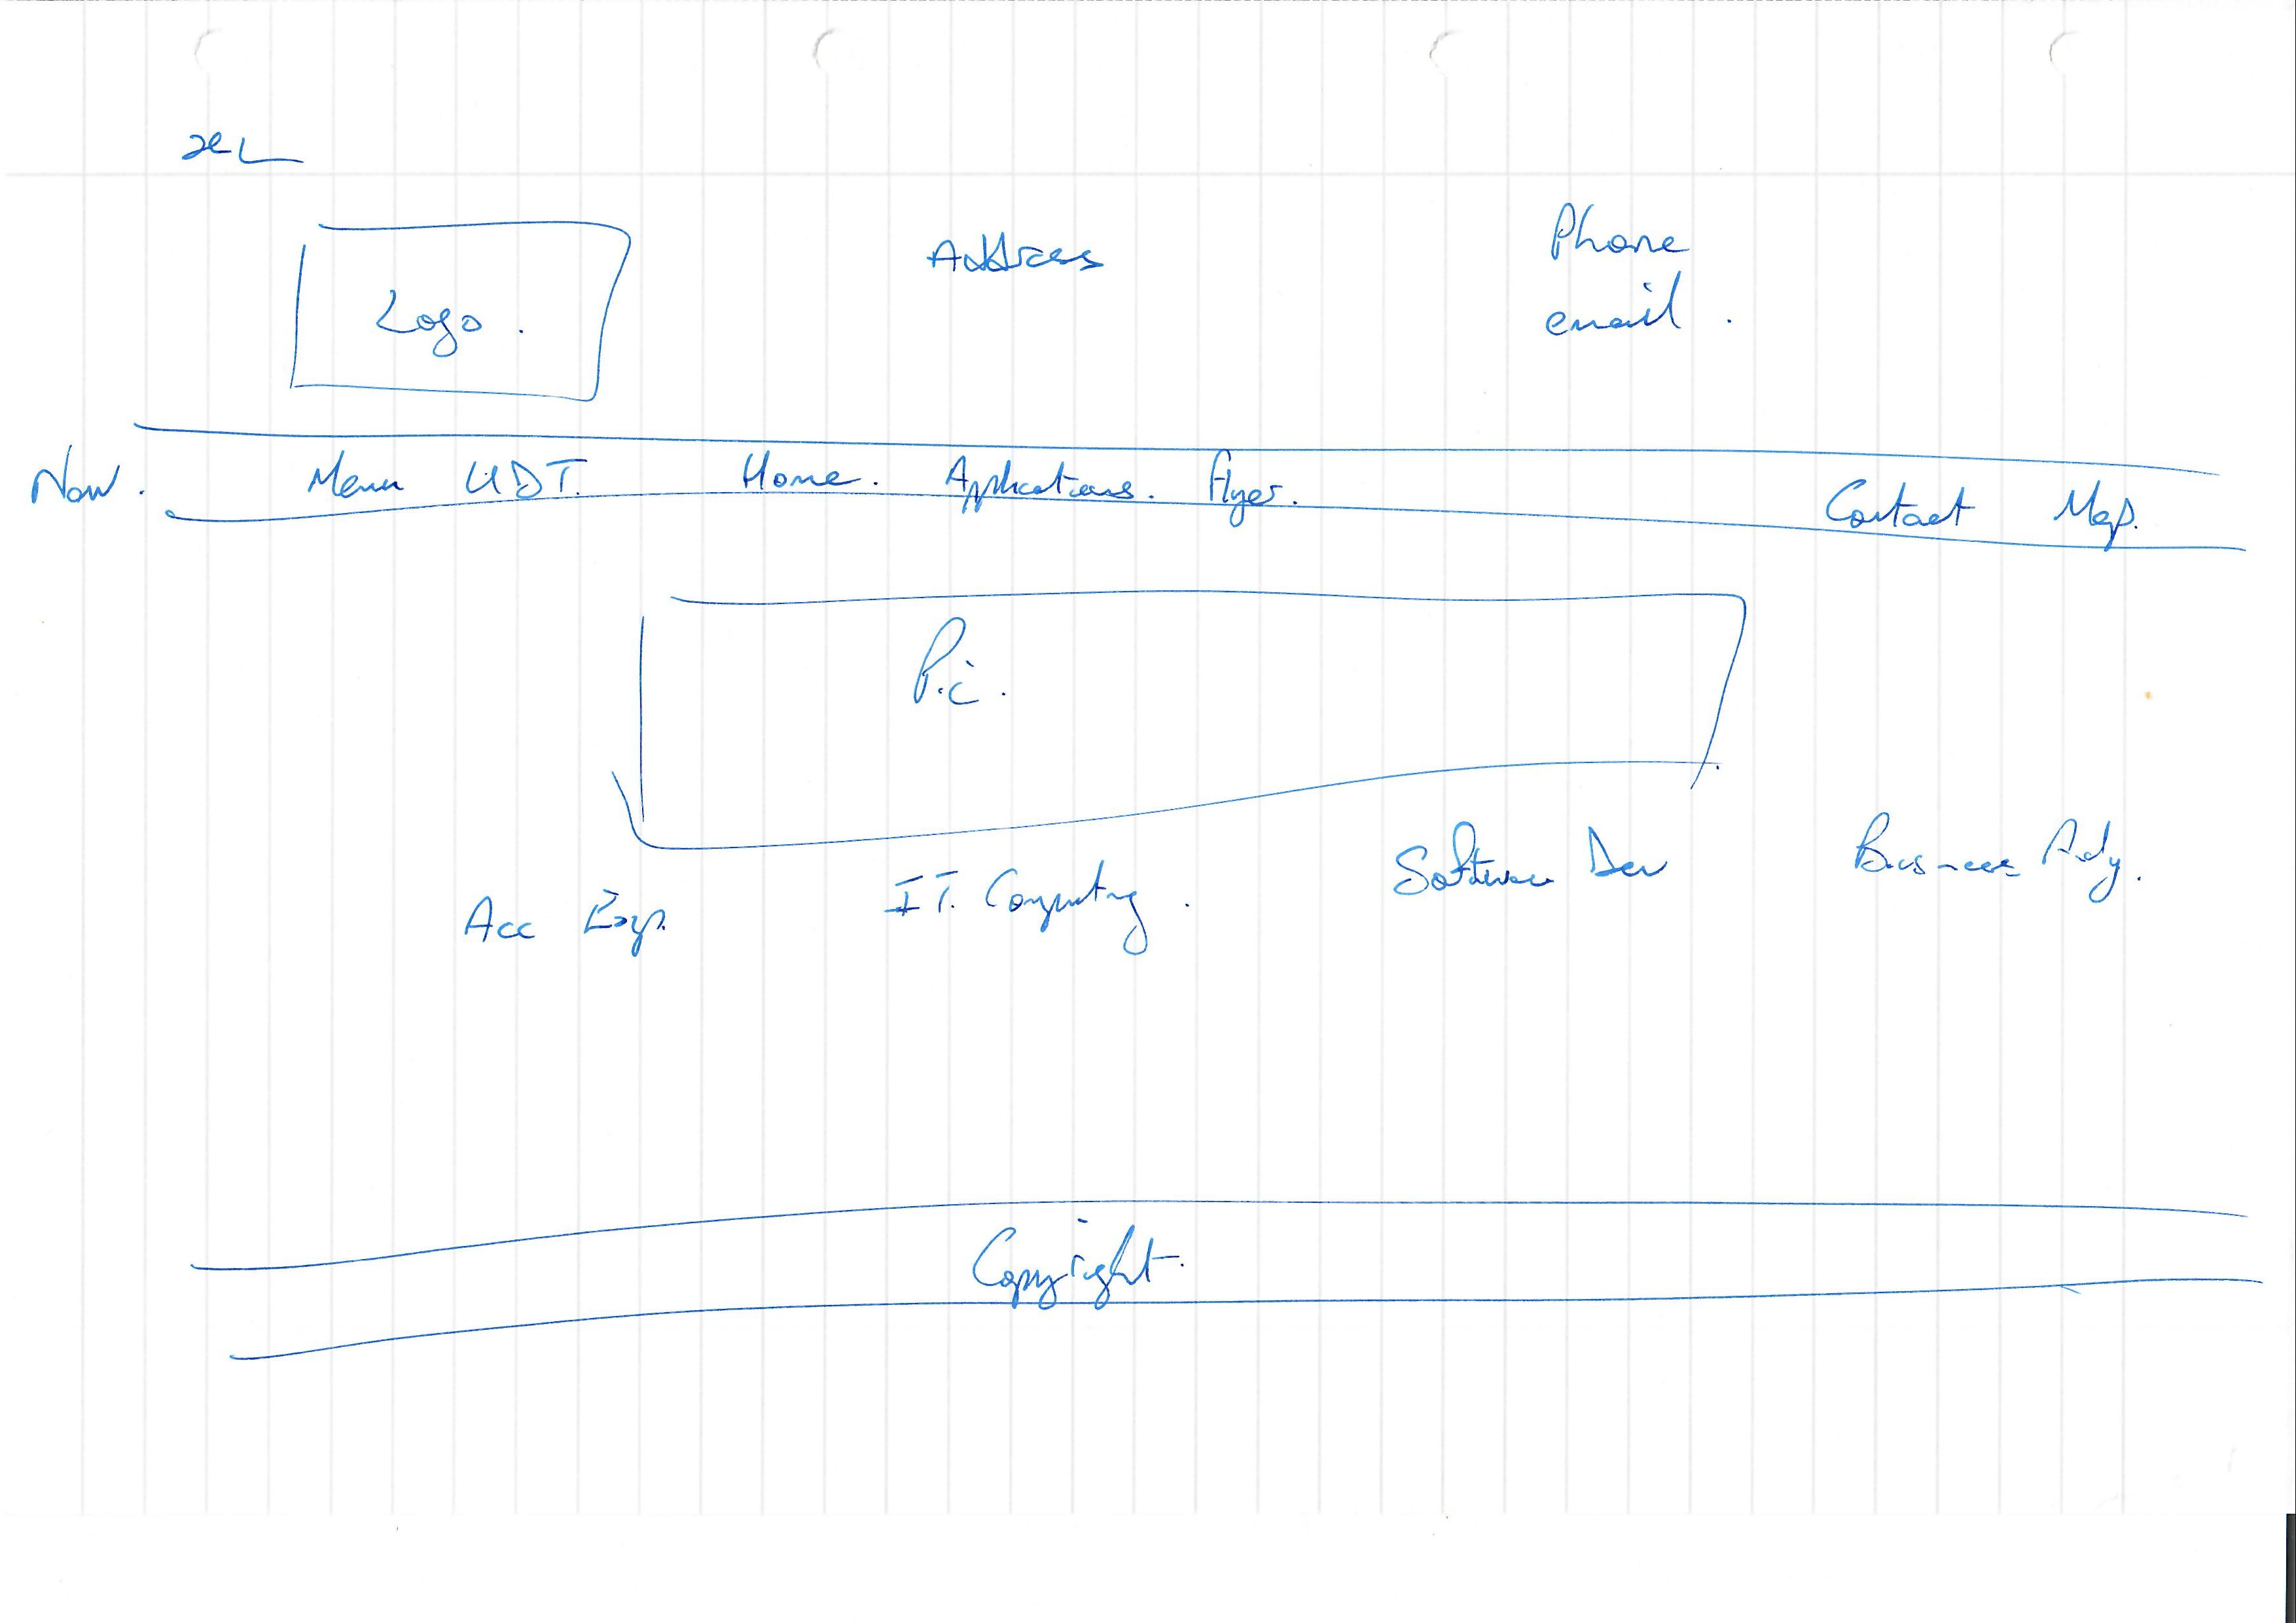 Address
Phone
Logo.
email.
Menu UDT. Home. Applications. Flyer.
Contact Map.
Pic.
Acc Exp. I.T. Computing. Software Dev Business Adv.
Copyright.